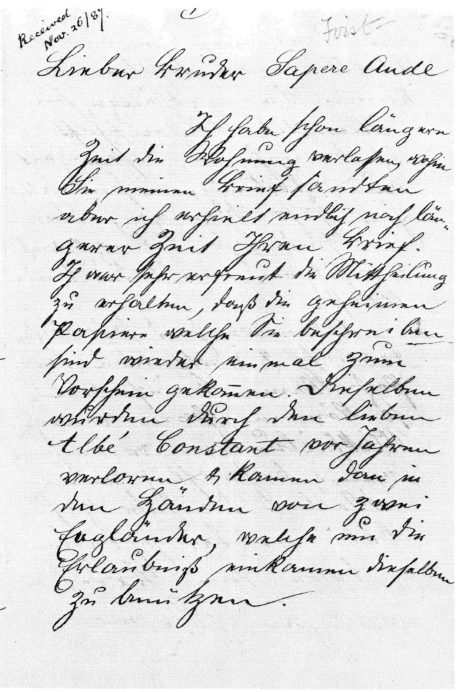 Received
Nov. 26/87.
First
Lieber Bruder Sapere Aude
Ich habe schon längere
Zeit die Wohnung verlassen, wohin
Sie meinen Brief sandten
aber ich erhielt endlich nach län-
gerer Zeit Ihren Brief.
Ich war sehr erfreut die Mittheilung
zu erhalten, daß die geheimen
Papiere welche Sie beschreiben
sind wieder einmal zum
Vorschein gekommen. Dieselben
wurden durch den lieben
Abbé Constant vor Jahren
verloren & kamen dan in
den Händen von zwei
Engländer, welche um die
Erlaubniß einkamen dieselben
zu benützen.